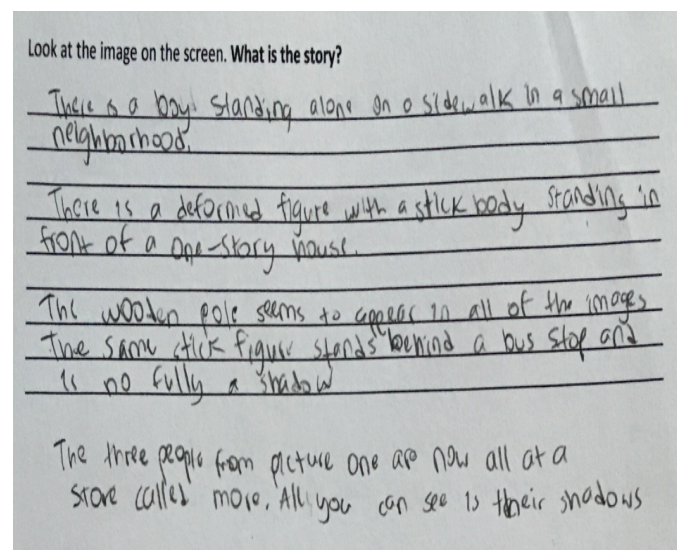 Look at the image on the screen. What is the story?
There is a boy standing alone on a sidewalk in a small
neighborhood.
There is a deformed figure with a stick body standing in
front of a one-story house.
The wooden pole seems to appear in all of the images
The same stick figure stands behind a bus stop and
is no fully a shadow
The three people from picture one are now all at a
store called more. All you can see is their shadows